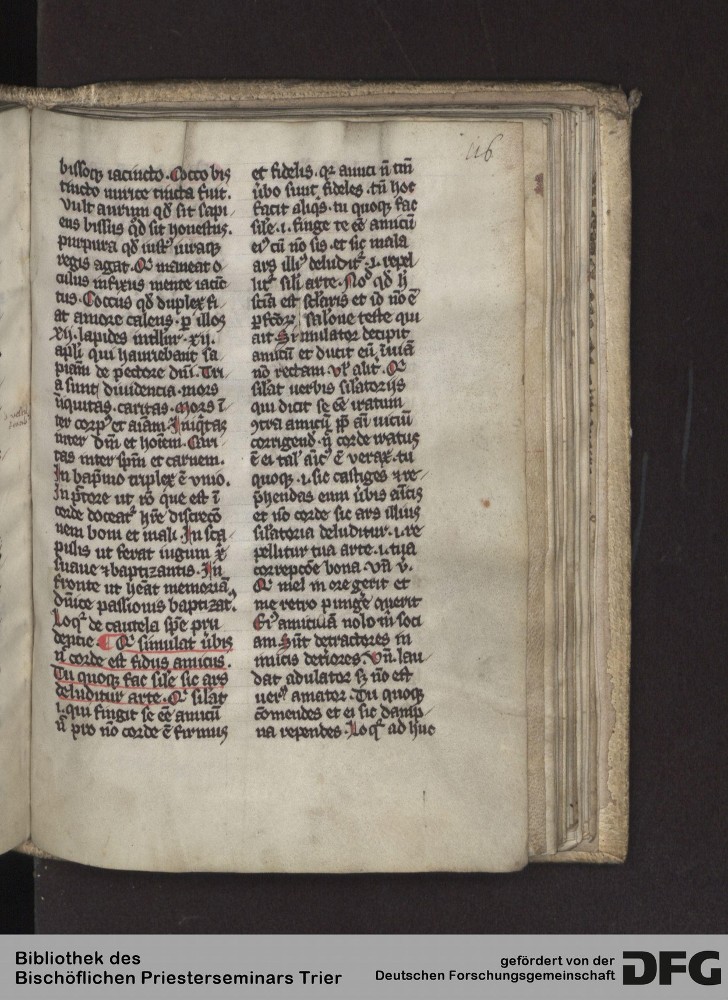 116
bissoqꝫ iacincto. Cocco bis
tincto murice tincta fuit.
Vult aurum qd̄ sit sapi
ens bissus qd̄ sit honestus.
purpura qd̄ iustꝰ uiraqꝫ
regis agat. Qͥ maneat o
culus infixus mente iacīc
tus. Coccus qd̄ duplex fi
at amore calens. ꝑ illos
xij. lapides intllīr. xij.
apl̄i qui hauriebant sa
piam̄ de pectore dn̄i. Tri
a sunt diuidencia. mors
iniquitas. caritas. Mors ī
ter corpꝰ et aīam. Iniqͥtas
inter dm̄ et hoīem. Cari
tas inter spm̄ et carnem.
In bapͥmo triplex ē vnio.
ut rō que est ī
corde doceatꝰ hr̄e discrecō
nem boni et mali. In sca
pulis ut ferat iugum xͥ
suaue ⁊ baptizantis. In
fronte ut hēat memoriā
dn̄ice passionis baptizatꝰ.
Loqͥꝰ de cautela spē pru
dentie. Qͥ simulat ūbis
n̄ corde est fidus amicus.
Tu quoqꝫ fac sil̄e sic ars
deluditur arte. Qͥ sil̄at
.i. qui fingit se ēē amicū
n̄ pro nō corde ē firmus
et fidelis. qꝛ amici n̄ tm̄
ūbo sunt fideles. tn̄ hoc
facit aliqͥs. tu quoqꝫ fac
sil̄e .i. finge te ēē amicū
eiꝰ cū nō sis. et sic mala
ars illiꝰ deluditꝰ .i. repel
litꝰ sil̄i arte. Nō qd̄ h̄
scīa est sclaris et id nō ē
salone teste qui
ait Simulator decipit
amicū et ducit eū ī uiā
nō rectam. vl̄ alit̄. Qͥ
sil̄at uerbis sil̄atorijs
qui dicit se ēē iratum
ꝯtra amicū ꝓpͥ aū uiciū
corrigend. n̄ corde iratus
ē ei tal' aīcꝰ ē verax. tu
quoqꝫ .i. sic castiges ⁊ re
p̄hendas eum ūbis
et nō corde sic ars illius
sil̄atoria deluditur .i. re
pellitur tua arte .i. tua
correpcōe bona. Vn̄ v̄.
Qͥ mel in ore gerit et
me retro pungē querit
Eiꝰ amiciciā nolo in soci
am. Sūt detractores in
imicis deriores. Vn̄. lau
dat adulator sꝫ nō est
uerꝰ amator Tu quoqꝫ
cōmendes et ei sic damp
na rependes. Loqͥꝰ ad huc
Bibliothek des
Bischöflichen Priesterseminars Trier
gefördert von der
Deutschen Forschungsgemeinschaft
DFG